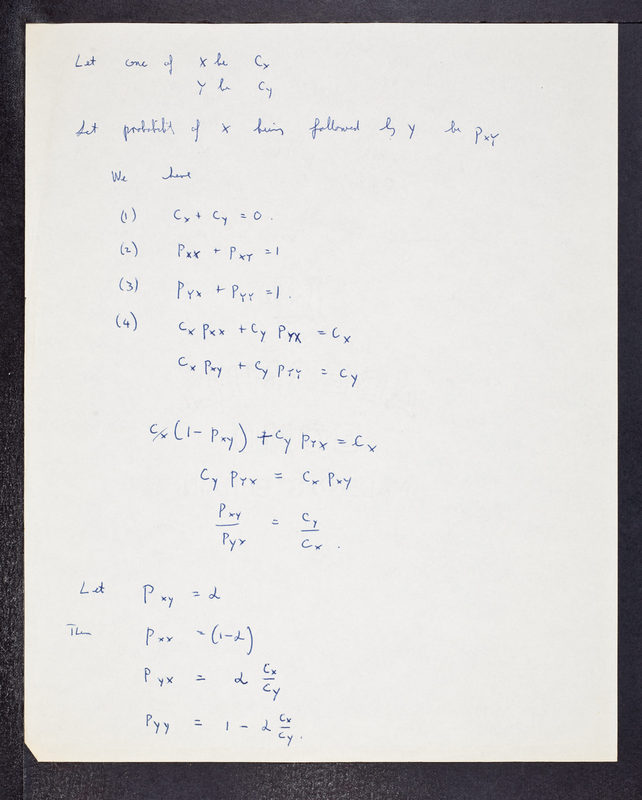 Let conc of X be Cx
Y be Cy
Let probability of X being followed by Y be PXY
We have
(1) Cx + Cy = 0.
(2) PXX + PXY = 1
(3) PYX + PYY = 1.
(4) Cx PXX + Cy PYX = Cx
Cx Pxy + Cy PYY = Cy
Cx (1 - Pxy) + Cy PYX = Cx
Cy PYX = Cx PXY
Pxy / PYX = Cy / Cx .
Let Pxy = α
Then Pxx = (1-α)
Pyx = α Cx / Cy
Pyy = 1 - α Cx / Cy .